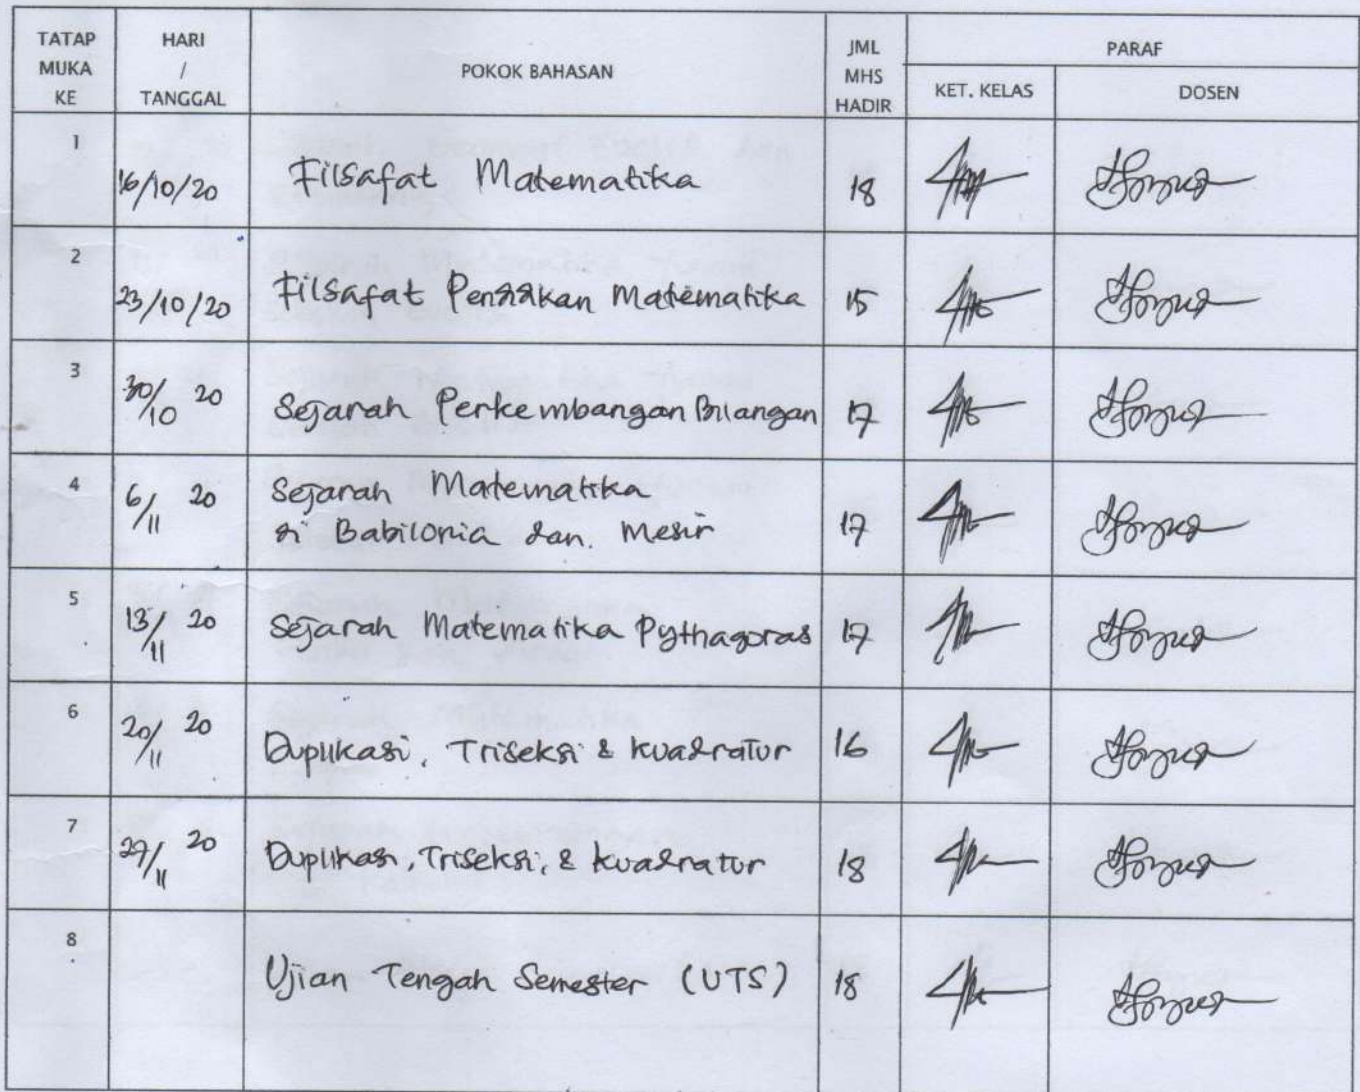 TATAP MUKA KE HARI / TANGGAL POKOK BAHASAN JML MHS HADIR PARAF
KET. KELAS DOSEN
1 16/10/20 Filsafat Matematika 18
2 23/10/20 Filsafat Matematika 15
3 30/10 20 Sejarah Perkembangan Bilangan 17
4 6/11 20 Sejarah Matematika
di Babilonia dan. Mesir 17
5 13/11 20 Sejarah Matematika Pythagoras 17
6 20/11 20 Duplikasi, Triseksi & kuadratur 16
7 27/11 20 Duplikasi, Triseksi, & kuadratur 18
8 Ujian Tengah Semester (UTS) 18